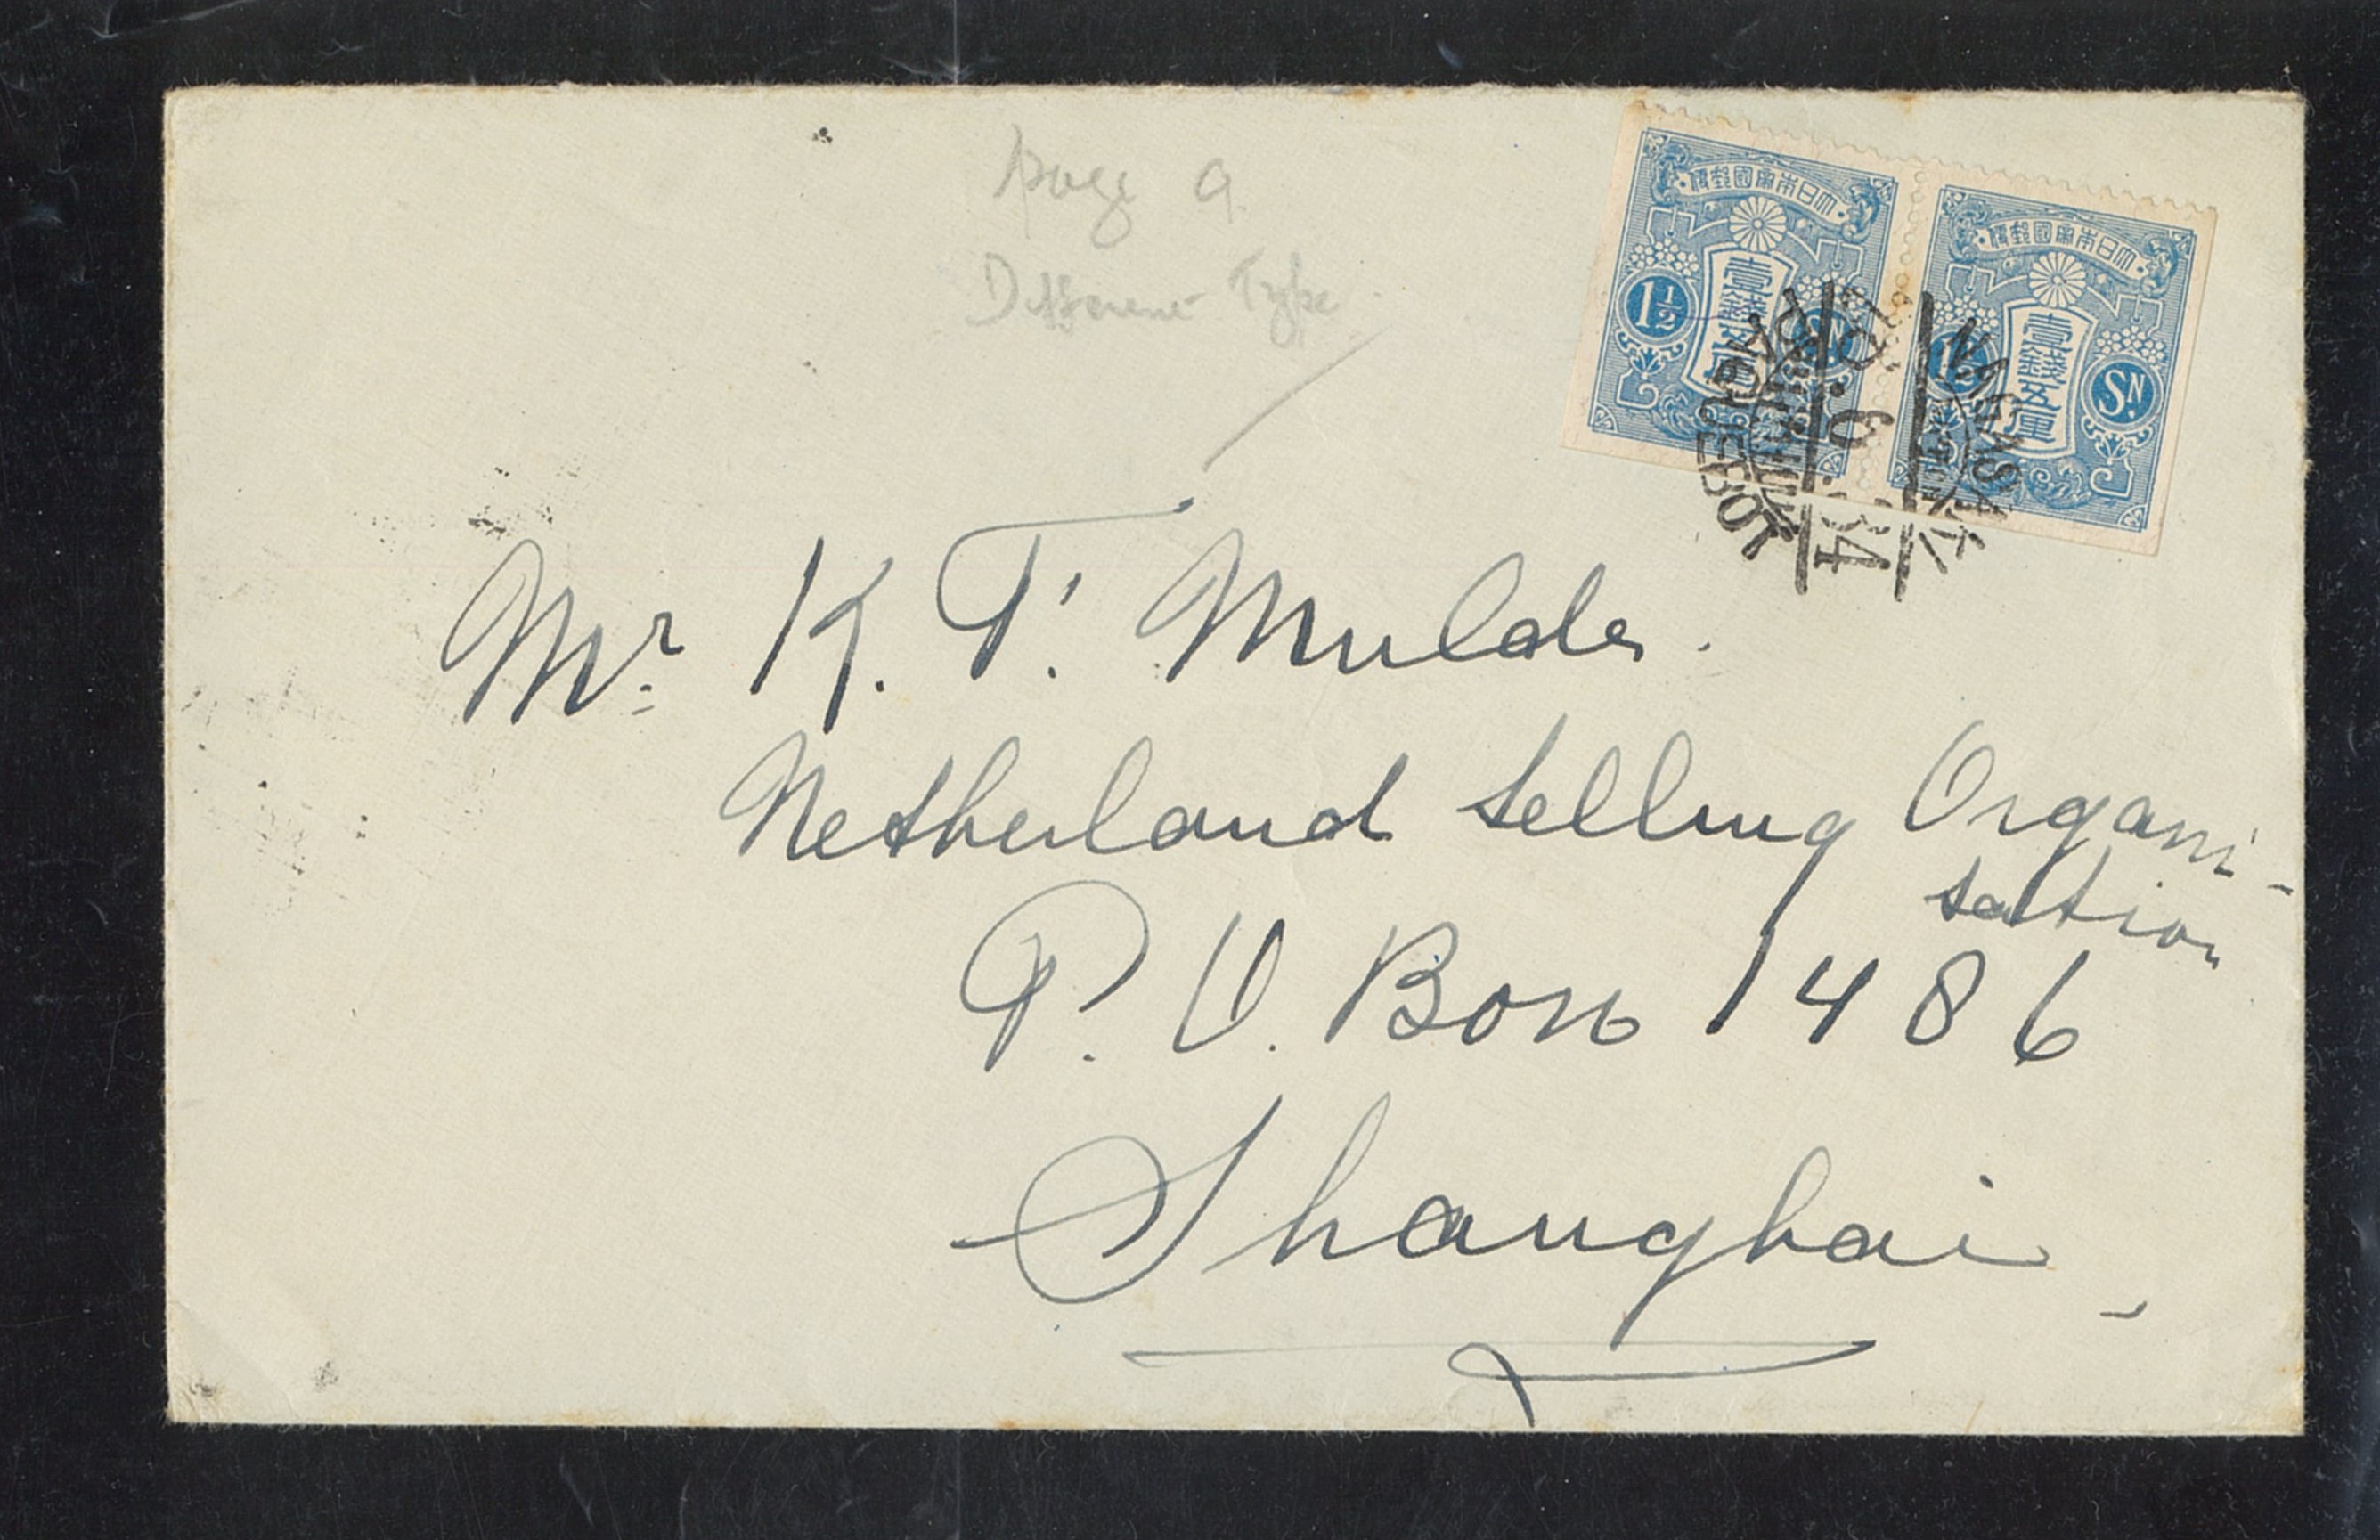 page 9
Different Type
大日本帝國郵便
壹錢五厘
1½
SN
大日本帝國郵便
壹錢五厘
1½
SN
NAGASAKI
PAQUEBOT
Mr. K. T. Mulder.
Netherland Selling Organi-
sation
P. O. Box 1486
Shanghai